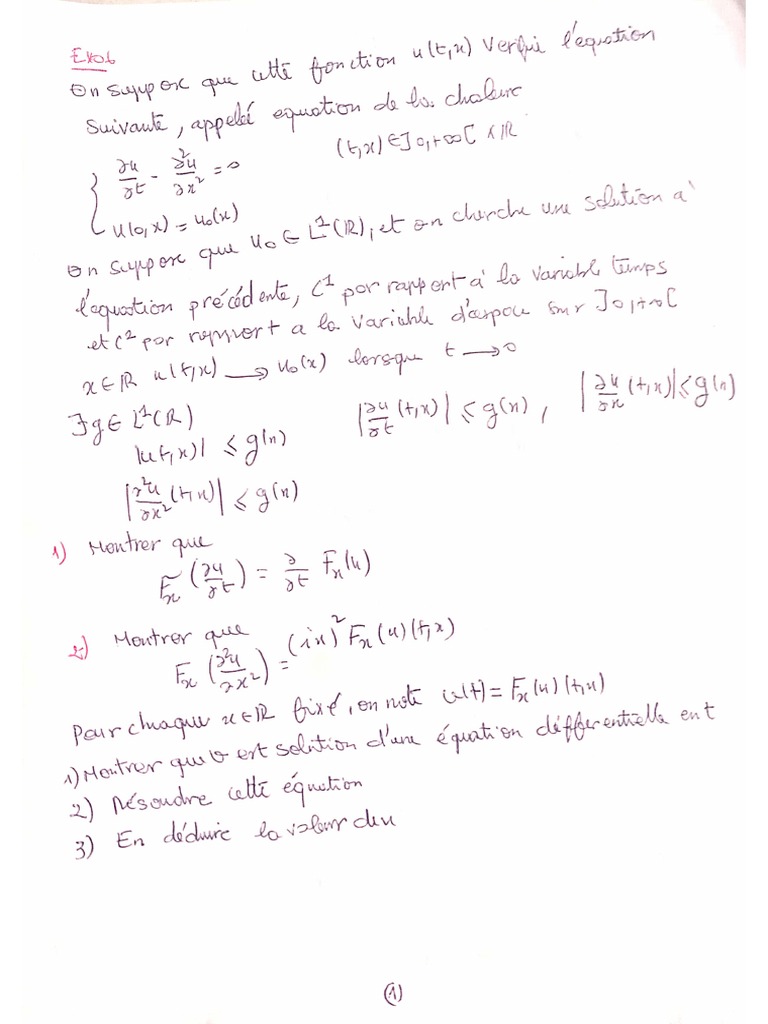 Exo6
On suppose que cette fonction u(t,x) verifie l'equation
suivante, appelé equation de la chaleur
{ ∂u/∂t - ∂²u/∂x² = 0    (t,x) ∈ ]0,+∞[ × ℝ
u(0,x) = u₀(x)
On suppose que u₀ ∈ L¹(ℝ), et on cherche une solution à
l'equation précédente, C¹ por rapport à la variable temps
et C² por rapport a la variable d'espace sur ]0,+∞[
x ∈ ℝ u(t,x) → u₀(x) lorsque t → 0
∃g ∈ L¹(ℝ)    |∂u/∂t (t,x)| ≤ g(x), |∂u/∂x (t,x)| ≤ g(x)
|u(t,x)| ≤ g(x)
|∂²u/∂x² (t,x)| ≤ g(x)
1) Montrer que
Fₓ(∂u/∂t) = ∂/∂t Fₓ(u)
2) Montrer que
Fₓ(∂²u/∂x²) = (ix)² Fₓ(u)(t,x)
Pour chaque x ∈ ℝ fixé, on note v(t) = Fₓ(u)(t,x)
1) Montrer que v est solution d'une équation différentielle en t
2) Résoudre cette équation
3) En déduire la valeur de u
(1)